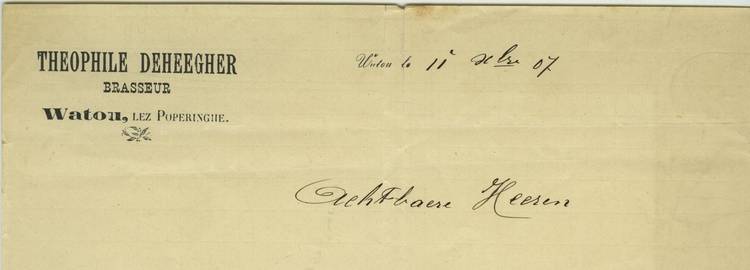 THEOPHILE DEHEEGHER
BRASSEUR
Watou, LEZ POPERINGHE.
Watou le 11 Xbre 07
Achtbaere Heeren